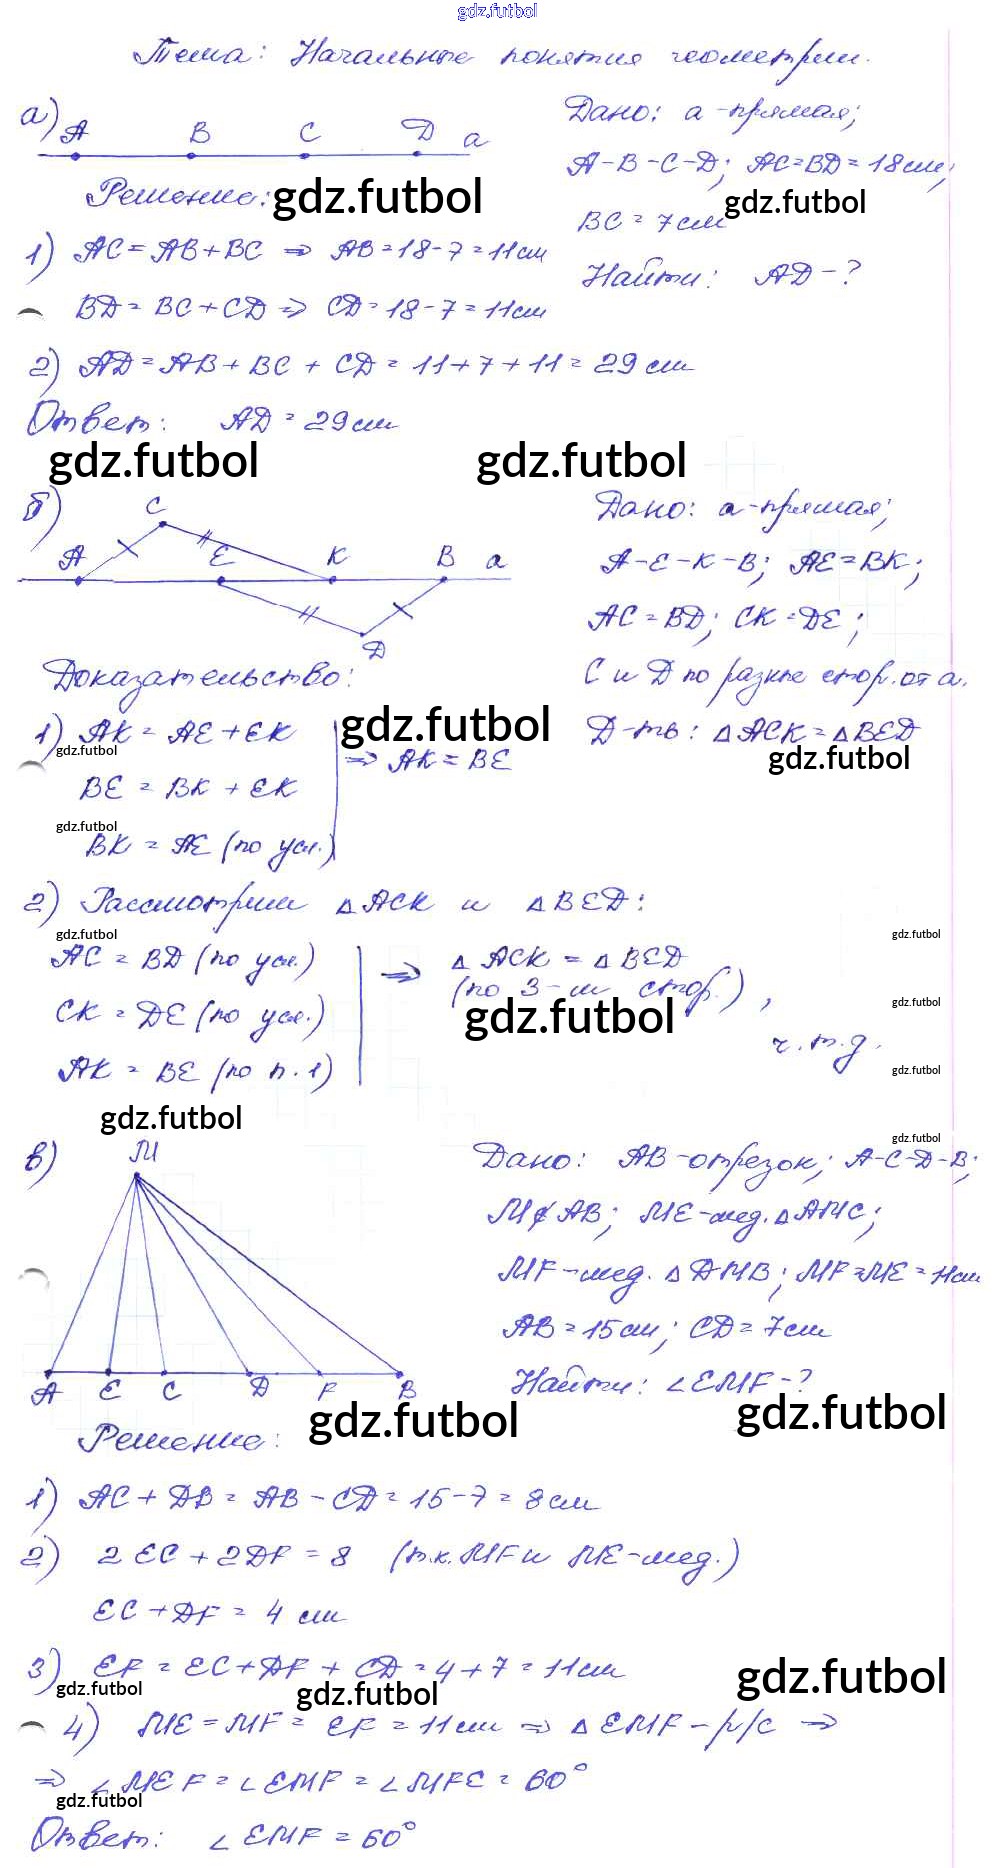 gdz.futbol
Тема: Начальные понятия геометрии.
а) A B C D a
Дано: a-прямая;
A-B-C-D; AC=BD=18см;
BC=7см
Найти: AD-?
Решение: gdz.futbol
gdz.futbol
1) AC=AB+BC ⇒ AB=18-7=11см
BD=BC+CD ⇒ CD=18-7=11см
2) AD=AB+BC+CD=11+7+11=29см
Ответ: AD=29см
gdz.futbol gdz.futbol
б) C A E K B a D
Дано: a-прямая;
A-E-K-B; AE=BK;
AC=BD; CK=DE;
C и D по разные стор. от a.
Д-ть: △ACK=△BED
Доказательство:
gdz.futbol
gdz.futbol
1) AK=AE+EK
gdz.futbol
BE=BK+EK ⇒ AK=BE
gdz.futbol
BK=AE (по усл.)
2) Рассмотрим △ACK и △BED:
gdz.futbol gdz.futbol
AC=BD (по усл.) ⇒ △ACK=△BED
(по 3-м стор.),
gdz.futbol gdz.futbol
CK=DE (по усл.)
ч.т.д.
AK=BE (по п.1)
gdz.futbol
gdz.futbol
gdz.futbol
в) M A E C D F B
Дано: AB-отрезок; A-C-D-B;
M∉AB; ME-мед.△AMC;
MF-мед. △DMB; MF=ME=11см
AB=15см; CD=7см
Найти: ∠EMF-?
gdz.futbol gdz.futbol
Решение:
1) AC+DB=AB-CD=15-7=8см
2) 2EC+2DF=8 (т.к. MF и ME-мед.)
EC+DF=4 см
3) EF=EC+DF+CD=4+7=11см
gdz.futbol gdz.futbol gdz.futbol
4) ME=MF=EF=11см ⇒ △EMF-р/с ⇒
⇒ ∠MEF=∠EMF=∠MFE=60°
gdz.futbol
Ответ: ∠EMF=60°